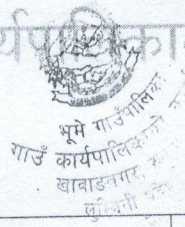 र्यपालिका
भूमे गाउँपालिका
गाउँ कार्यपालिकाको
खावाङबगर,
लुम्बिनी प्रदेश